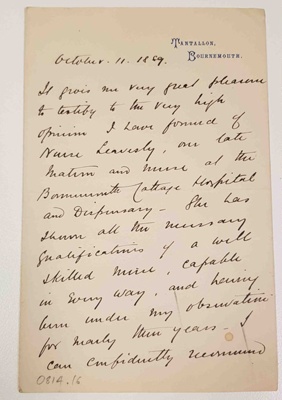 Tantallon,
Bournemouth.
October. 11. 1889.
It gives me very great pleasure
to testify to the very high
opinion I have formed of
Nurse Leavesly, our late
Matron and nurse at the
Bournemouth Cottage Hospital
and Dispensary - She has
shown all the necessary
qualifications of a well
skilled nurse, capable
in every way, and having
been under my observation
for nearly three years - I
can confidently recommend
0814.16